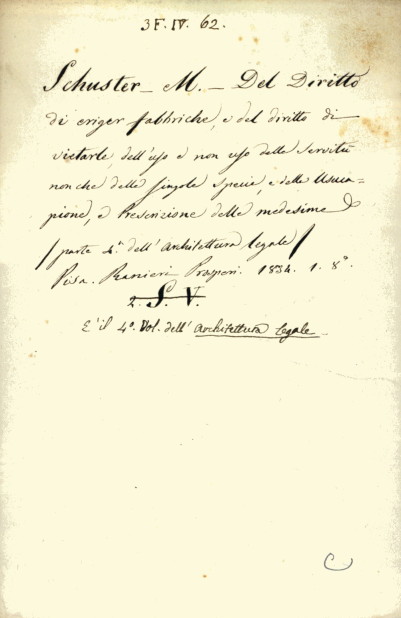 3 F. IV. 62.
Schuster - M. - Del Diritto
di eriger fabbriche, e del diritto di
vietarle, dell'uso e non uso delle servitù
nonche delle singole specie, e della Usuca=
pione, e Prescrizione delle medesime
/ parte 4.ª dell'Architettura legale /
Pisa. Ranieri Prosperi. 1834. 1. 8°.
2. S. V.
E' il 4°. Vol. dell' Architettura Legale
C